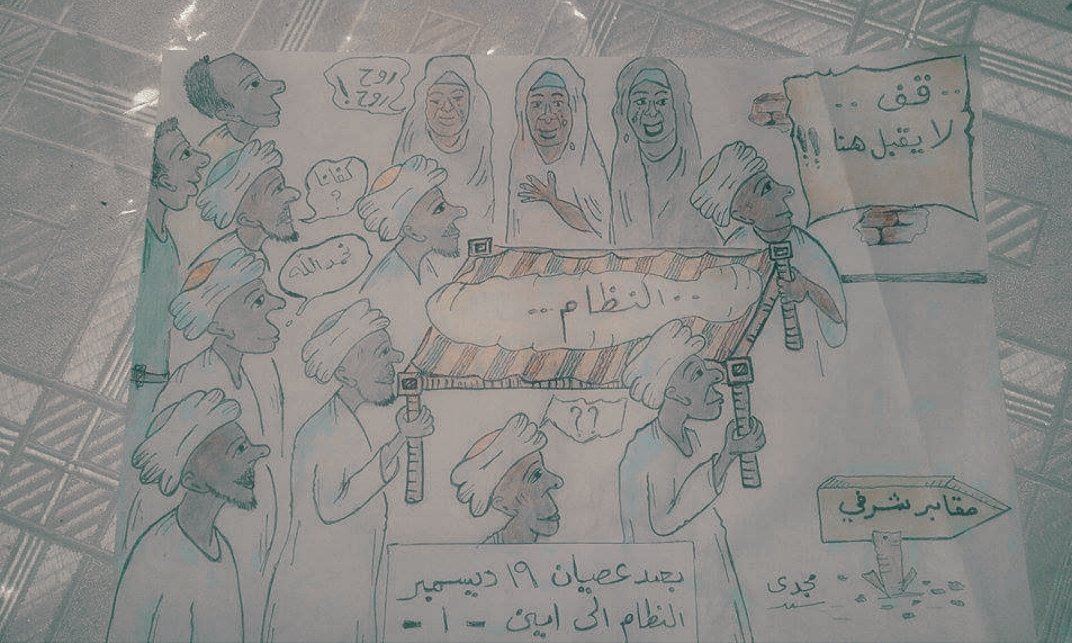 .. قف ..
لا يقبل هنا !!!
روح
روح !
كفانا
?
نحمد الله
.. النظام ..
??
مقابر شرفي
بعد عصيان ١٩ ديسمبر
النظام الى اين - ١ -
مجدى